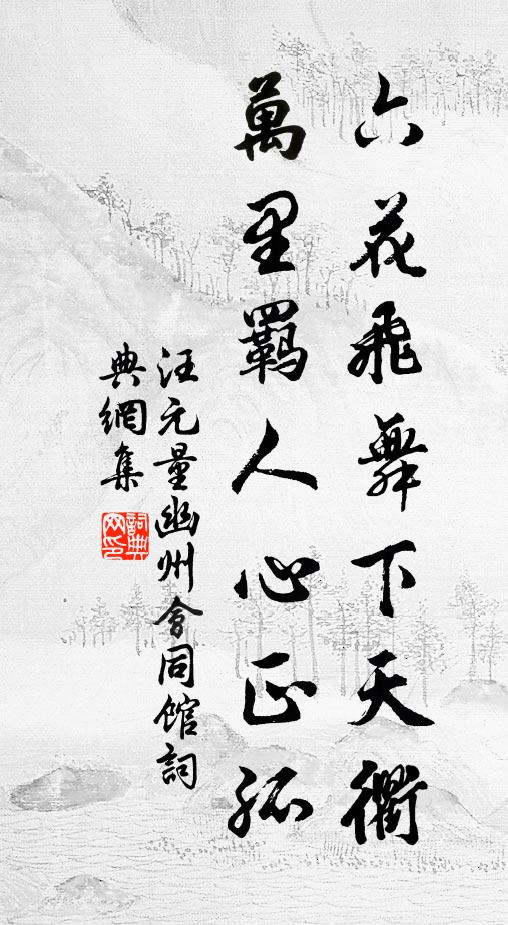 六花飛舞下天衢
萬里羈人心正孤
汪元量幽州會同館詞
典網集
詞典
网印